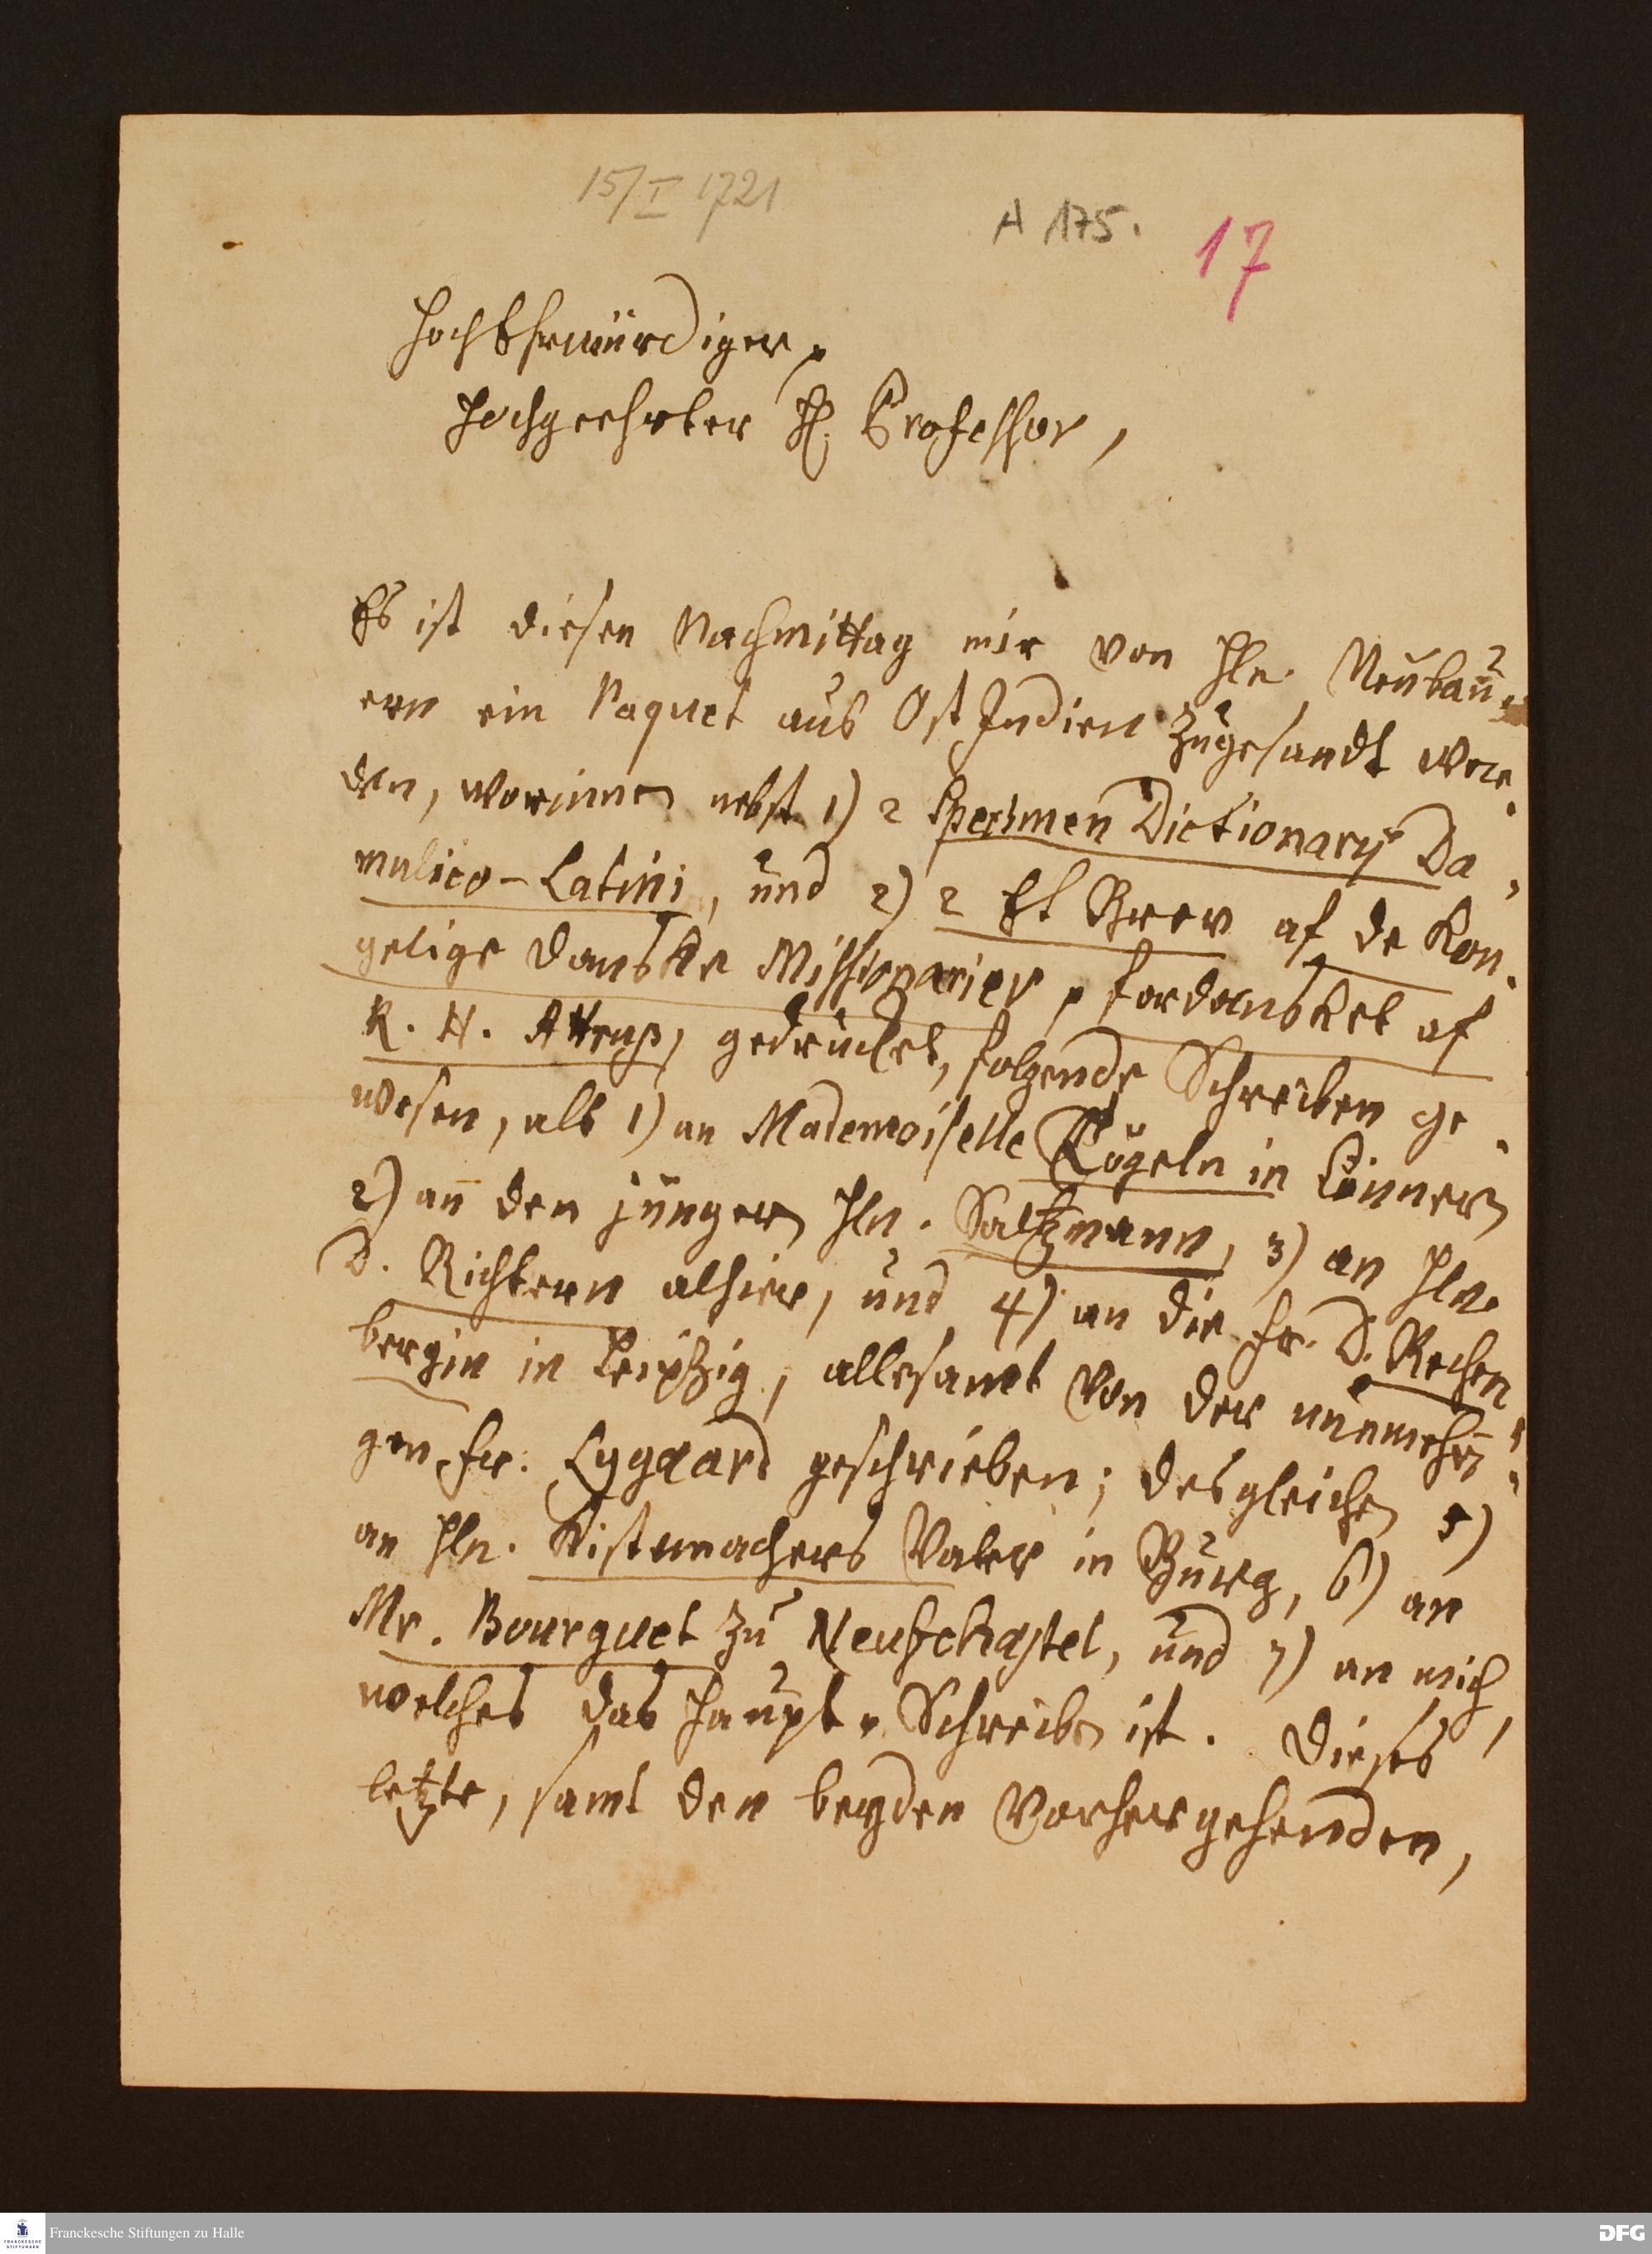 15/I 1721
A 175.
17
HochEhrwürdiger,
Hochgeehrter H. Professor,
Es ist diesen Nachmittag mir von Hln. Neubau-
ern ein Paquet aus OstIndien zugesandt wor-
den, worinnen nebst 1) 2 Specimen Dictionarij Da-
mulico-Latini, und 2) 2 Et Brev af de Kon-
gelige danske Missionarier, fordansket af
R. H. Attrup, gedrucket, folgende Schreiben ge-
wesen, als 1) an Mademoiselle Tögeln in Cönnern
2) an den jüngern Hln. Saltzmann, 3) an Hln.
D. Richtern alhier, und 4) an die Fr. D. Rechen-
bergin in Leipzig, allesamt von der nunmehri-
gen Fr. Lygaard geschrieben; desgleichen 5)
an Hln. Kistemachers Vater in Burg, 6) an
Mr. Bourguet zu Neufchastel, und 7) an mich,
welches das Haupt-Schreiben ist. Dieses
letzte, samt den beyden vorhergehenden,
Franckesche Stiftungen zu Halle
FRANCKESCHE
STIFTUNGEN
DFG